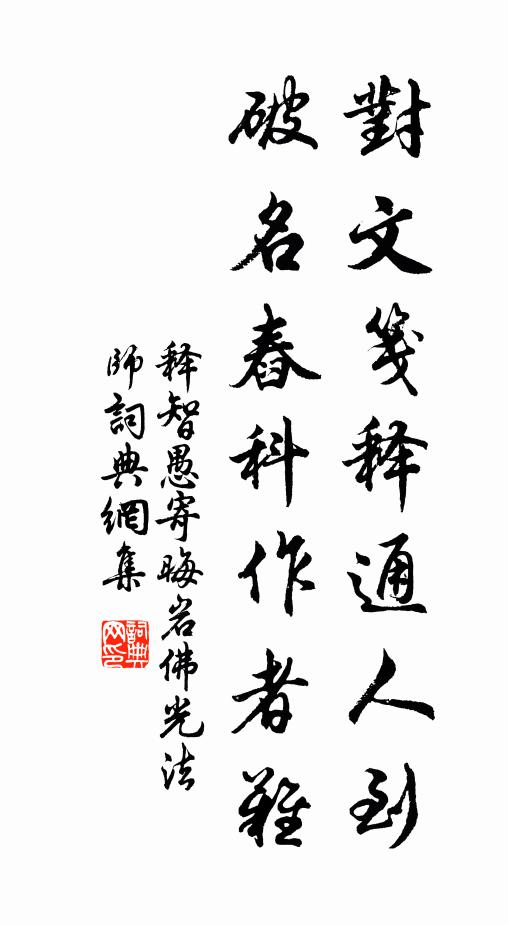 對文箋释通人到
破名舂科作者難
释智愚寄晦岩佛光法
師詞典網集
詞典網印